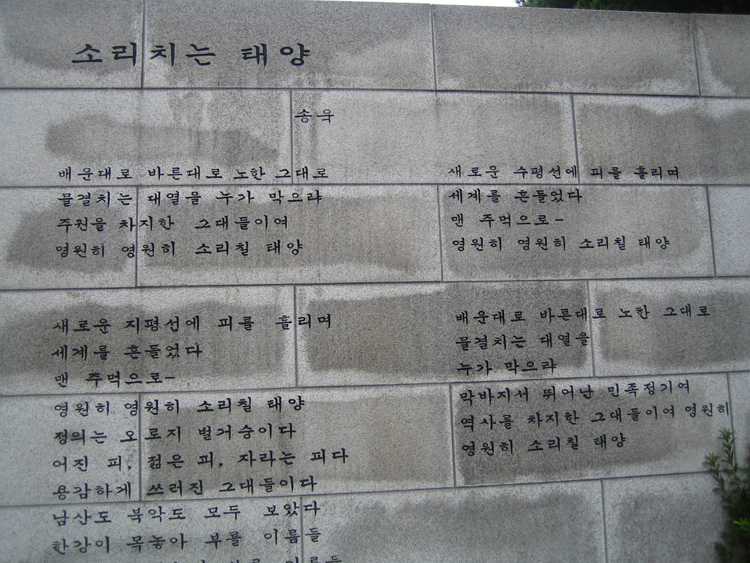 소리치는 태양
송욱
배운대로 바른대로 노한 그대로
물결치는 대열을 누가 막으랴
주권을 차지한 그대들이여
영원히 영원히 소리칠 태양
새로운 지평선에 피를 흘리며
세계를 흔들었다
맨 주먹으로-
영원히 영원히 소리칠 태양
정의는 오로지 벌거숭이다
어진 피, 젊은 피, 자라는 피다
용감하게 쓰러진 그대들이다
남산도 북악도 모두 보았다
한강이 목놓아 부를 이름들
이름들
새로운 수평선에 피를 흘리며
세계를 흔들었다
맨 주먹으로-
영원히 영원히 소리칠 태양
배운대로 바른대로 노한 그대로
물결치는 대열을
누가 막으랴
막바지서 뛰어난 민족정기여
역사를 차지한 그대들이여 영원히
영원히 소리칠 태양